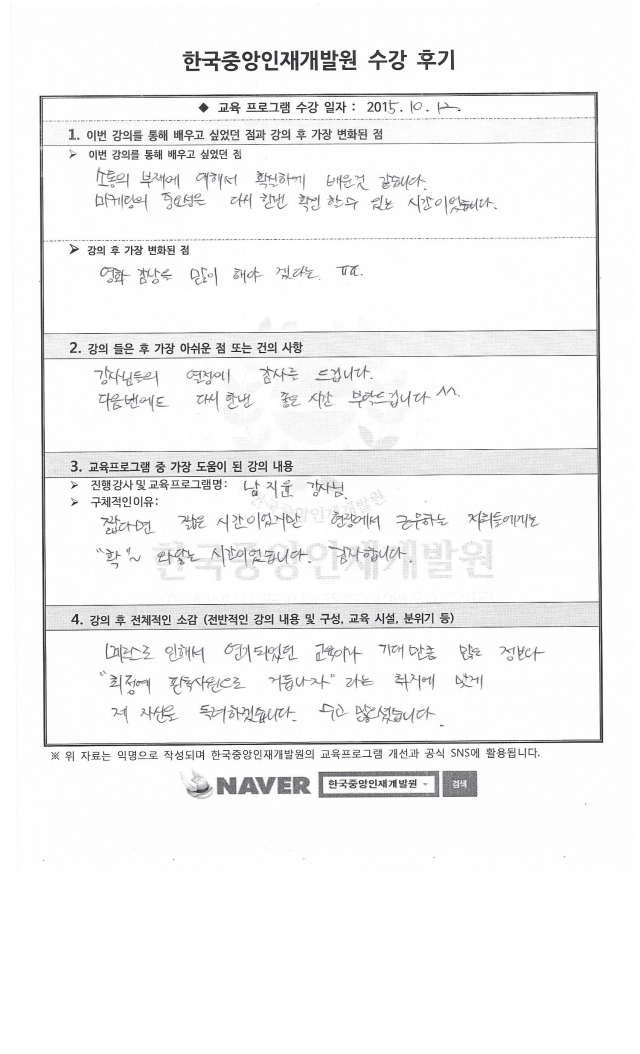 한국중앙인재개발원 수강 후기
◆ 교육 프로그램 수강 일자 : 2015. 10. 12.
1. 이번 강의를 통해 배우고 싶었던 점과 강의 후 가장 변화된 점
➢ 이번 강의를 통해 배우고 싶었던 점
소통의 부재에 대해서 확실하게 배운것 같습니다.
마케팅의 중요성은 다시 한번 확인 할 수 있는 시간이었습니다.
➢ 강의 후 가장 변화된 점
영화 감상을 많이 해야 겠다는 ㅠㅠ.
2. 강의 들은 후 가장 아쉬운 점 또는 건의 사항
강사님들의 열정에 감사를 드립니다.
다음번에도 다시 한번 좋은 시간 부탁드립니다 ^^.
3. 교육프로그램 중 가장 도움이 된 강의 내용
➢ 진행강사 및 교육프로그램명 : 남지윤 강사님.
➢ 구체적인이유 :
짧다면 짧은 시간이었지만 현장에서 근무하는 저희들에게는
"확"~ 와닿는 시간이었습니다. 감사합니다.
한국중앙인재개발원
4. 강의 후 전체적인 소감 (전반적인 강의 내용 및 구성, 교육 시설, 분위기 등)
메르스로 인해서 연기되었던 교육이라 기대 만큼 많은 정보와
"최정예 판촉사원으로 거듭나자" 라는 취지에 맞게
제 자신을 독려하겠습니다. 수고 많으셨습니다.
※ 위 자료는 익명으로 작성되며 한국중앙인재개발원의 교육프로그램 개선과 공식 SNS에 활용됩니다.
NAVER 한국중앙인재개발원 검색